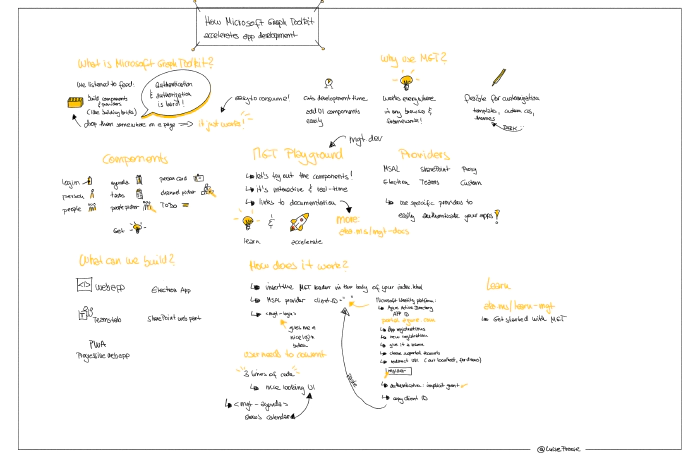 How Microsoft Graph Toolkit
accelerates app development
What is Microsoft Graph Toolkit?
We listened to feed:
build components
& providers
(like building bricks)
drop them somewhere on a page → it just works!
Authentication
& authorization
is hard!
easy to consume!
Cuts development time
add UI components
easily
Why use MGT?
works everywhere
in any browser &
frameworks!
flexible for customization
templates, custom css,
themes
DARK
Components
Login
person
people
agenda
tasks
people picker
person card
channel picker
TODO
Get
MGT Playground
mgt.dev
let's try out the components!
it's interactive & real-time
links to documentation
more:
aka.ms/mgt-docs
learn
&
accelerate
Providers
MSAL SharePoint Proxy
Electron Teams Custom
use specific providers to
easily authenticate your apps!
What can we build?
</> web app
Electron App
Teams tab
SharePoint web part
PWA
Progressive web app
How does it work?
insert the MGT loader in the body of your index.html
MSAL provider client-ID=" "
<mgt-login>
gives me a
nice login
button
user needs to consent
3 lines of code
nice looking UI
<mgt-agenda>
shows calendar
Microsoft Identity platform:
Azure Active Directory
App ID
portal.azure.com
App registrations
new registration
give it a name
choose supported accounts
redirect URI (our localhost, for demo)
register
authentication: implicit grant
copy client ID
paste
Learn
aka.ms/learn-mgt
Get started with MGT
@LuiseFreese